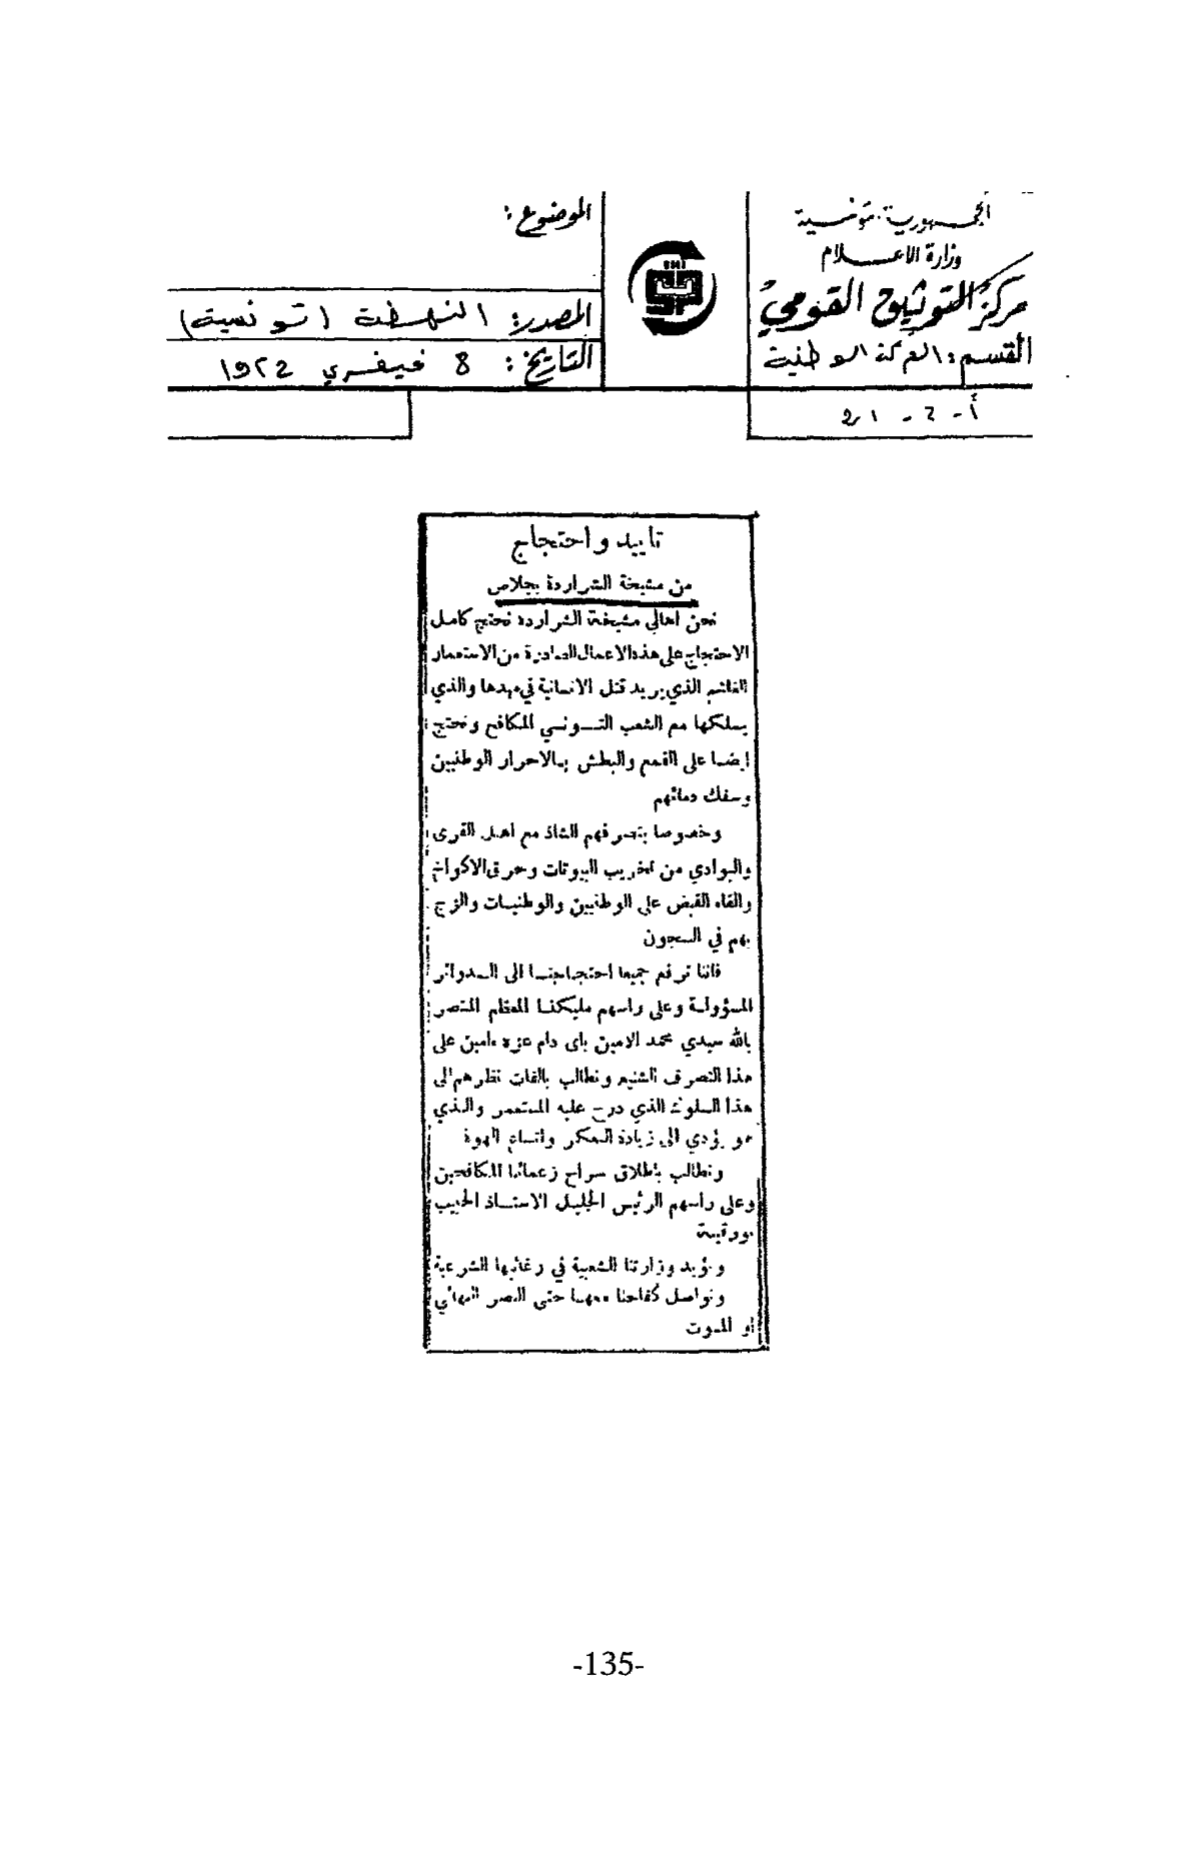 الجمهورية التونسية
وزارة الاعلام
مركز التوثيق القومي
القسم: الحركة الوطنية
أ - 2 - 21
الموضوع:
المصدر: النهضة (تونسية)
التاريخ: 8 فيفري
تاييد واحتجاج
من مشيخة الشراردة بجلاص
نحن اهالي مشيخة الشراردة نحتج كامل
الاحتجاج على هذه الاعمال الصادرة من الاستعمار
الغاشم الذي يريد قتل الانسانية في مهدها والذي
يسلكها مع الشعب التونسي المكافح ونحتج
ايضا على القمع والبطش بالاحرار الوطنيين
وسفك دمائهم
وخصوصا بتصرفهم الشاذ مع اهل القرى
والبوادي من تخريب البيوتات وحرق الاكواخ
والقاء القبض على الوطنيين والوطنيات والزج
بهم في السجون
فاننا نرفع جميعا احتجاجنا الى الدوائر
المسؤولة وعلى راسهم مليكنا المعظم المنتصر
بالله سيدي محمد الامين باى دام عزه ءامين على
هذا التصرف الشنيع ونطالب بالفات نظرهم الى
هذا السلوك الذي درج عليه المستعمر والذي
هو يؤدي الى زيادة العكر واتساع الهوة
ونطالب باطلاق سراح زعمائنا المكافحين
وعلى راسهم الرئيس الجليل الاستاذ الحبيب
بورقيبة
ونؤيد وزارتنا الشعبية في رغائبها الشرعية
ونواصل كفاحنا معها حتى النصر النهائي
او الموت
-135-